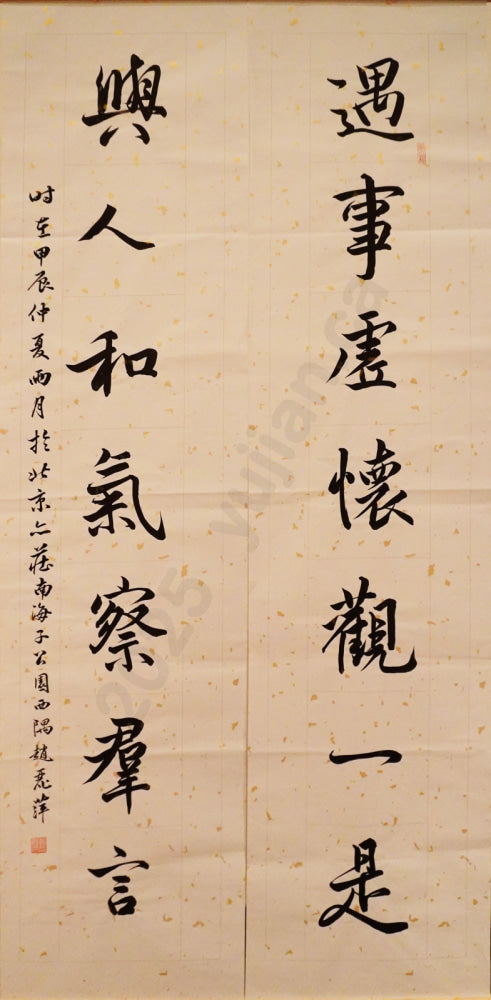 遇事虛懷觀一是
與人和氣察羣言
时在甲辰仲夏雨月於北京亦莊南海子公園西隅趙麗萍
2025 yujian.ca